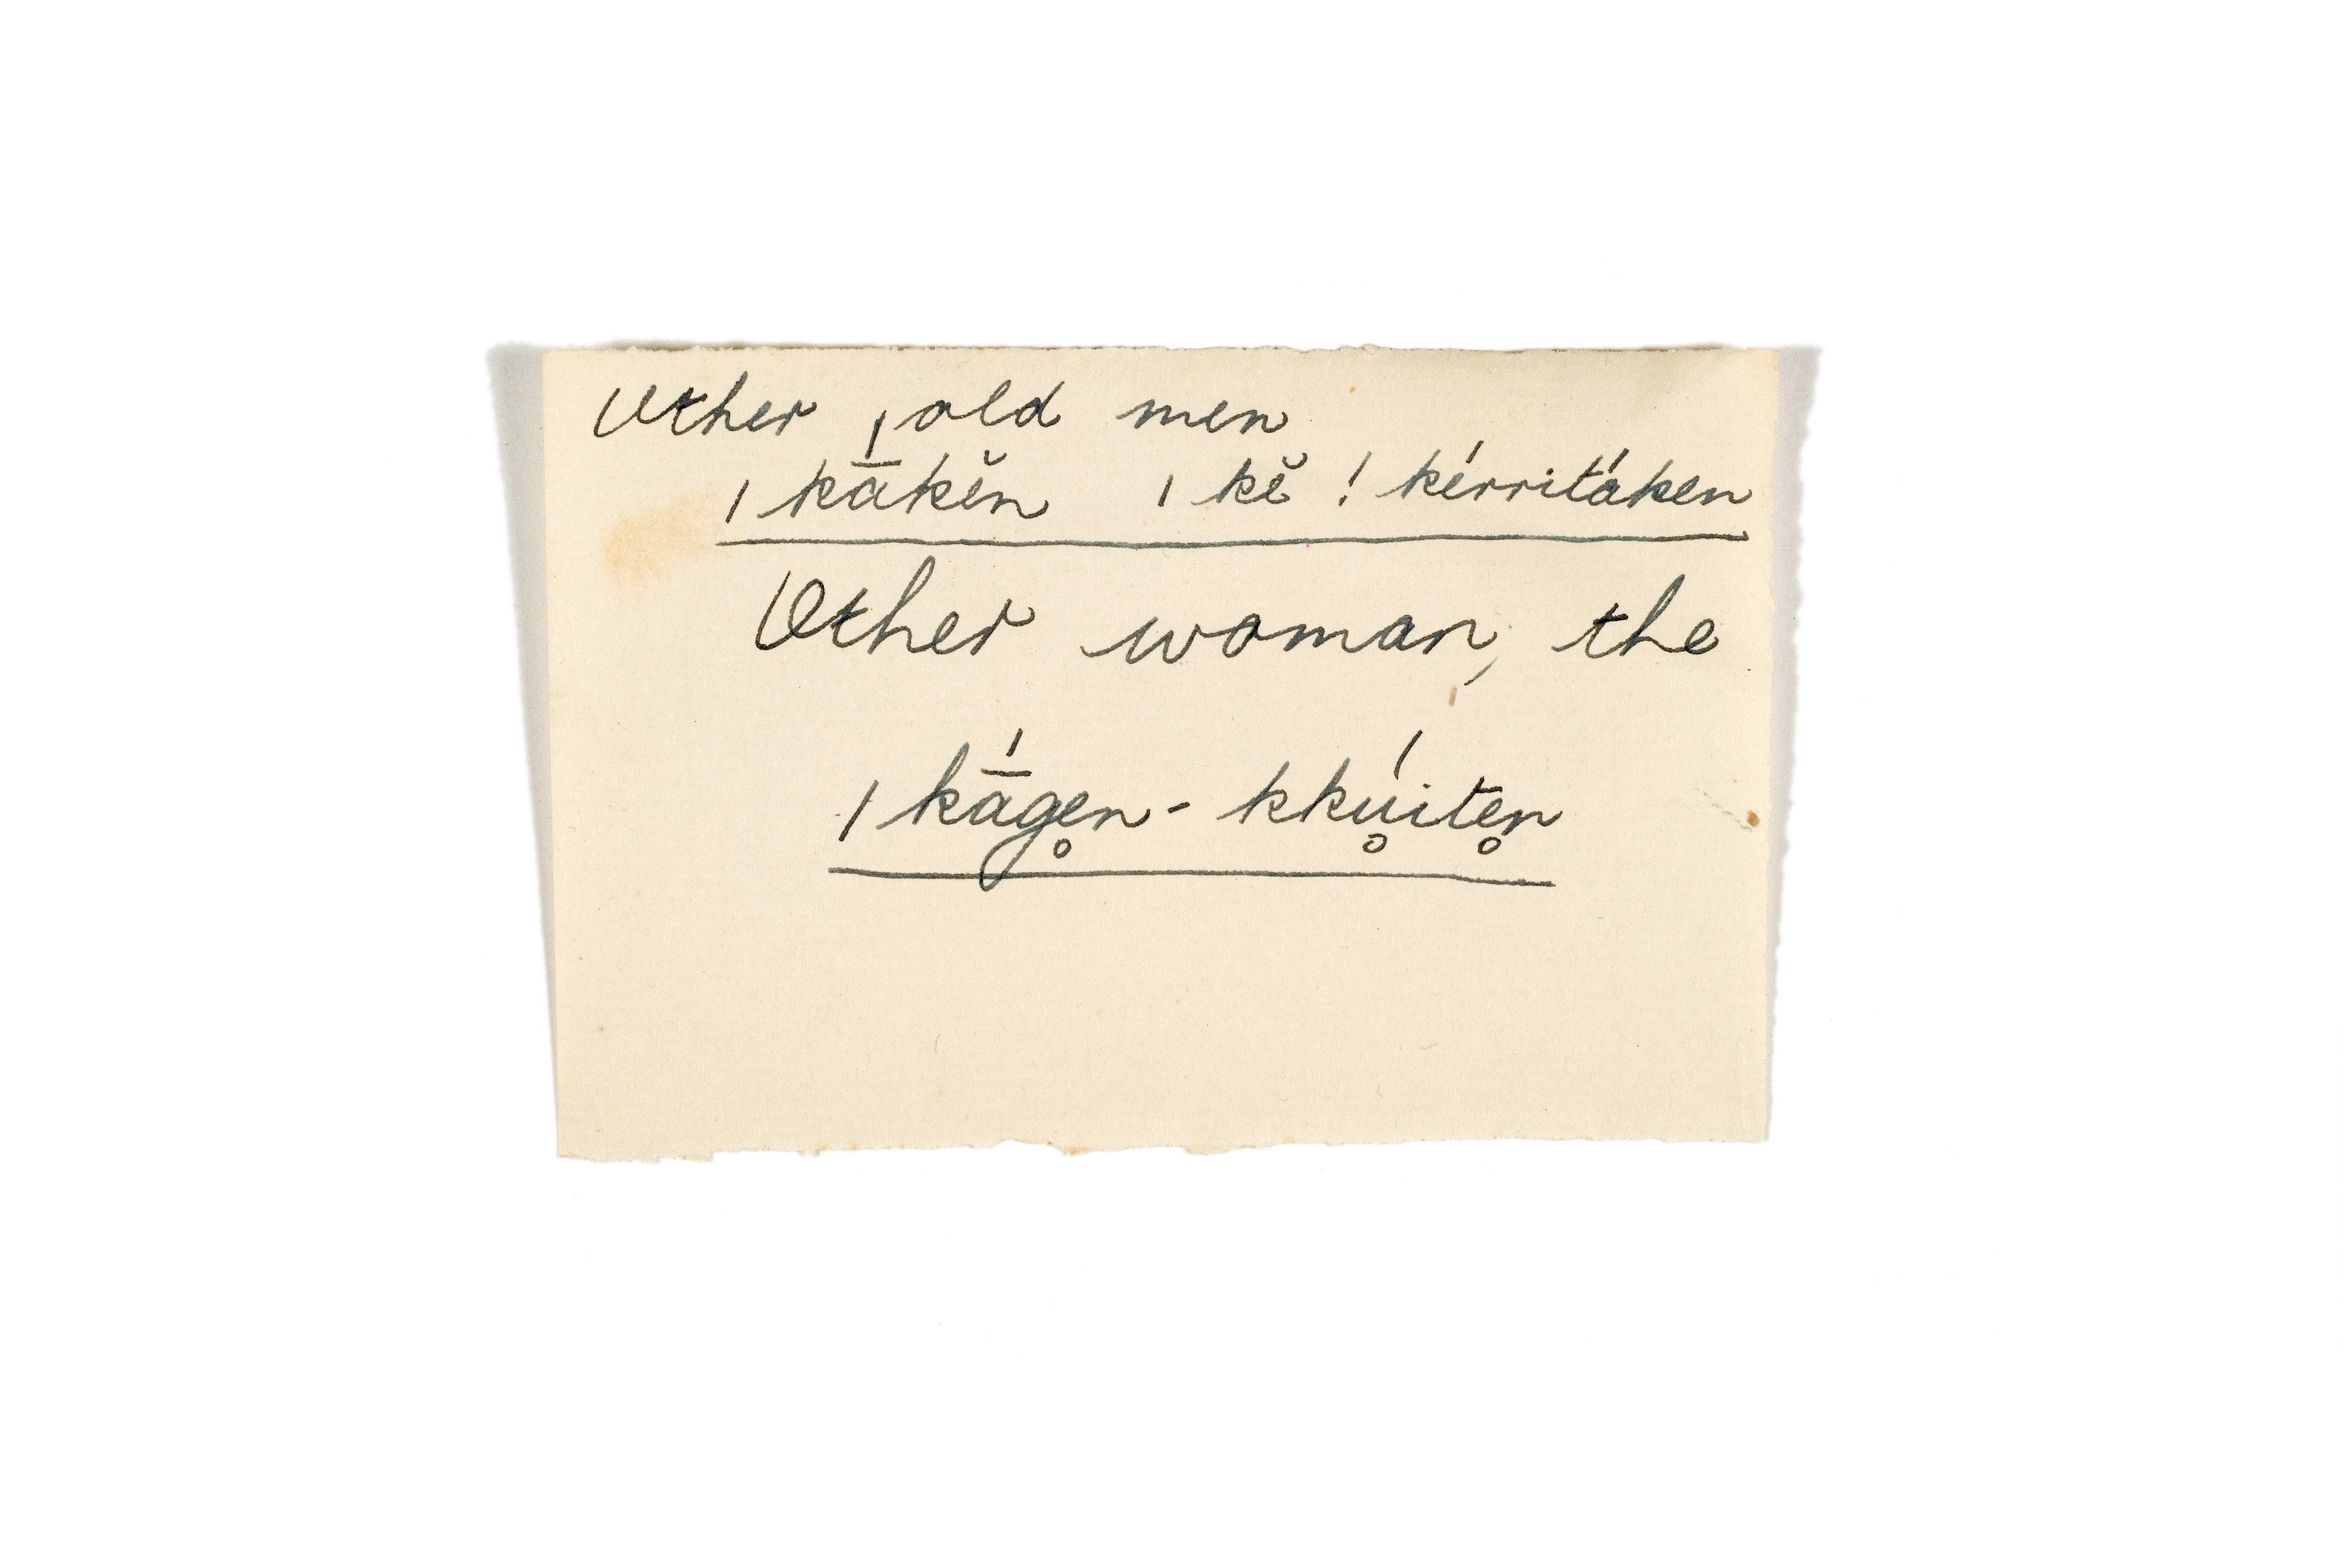 Other old men
ǀ kā́kĕn ǀ kĕ ! kérritáken
Other woman, the
ǀ kā́ge̥n - kkú̥ite̥n